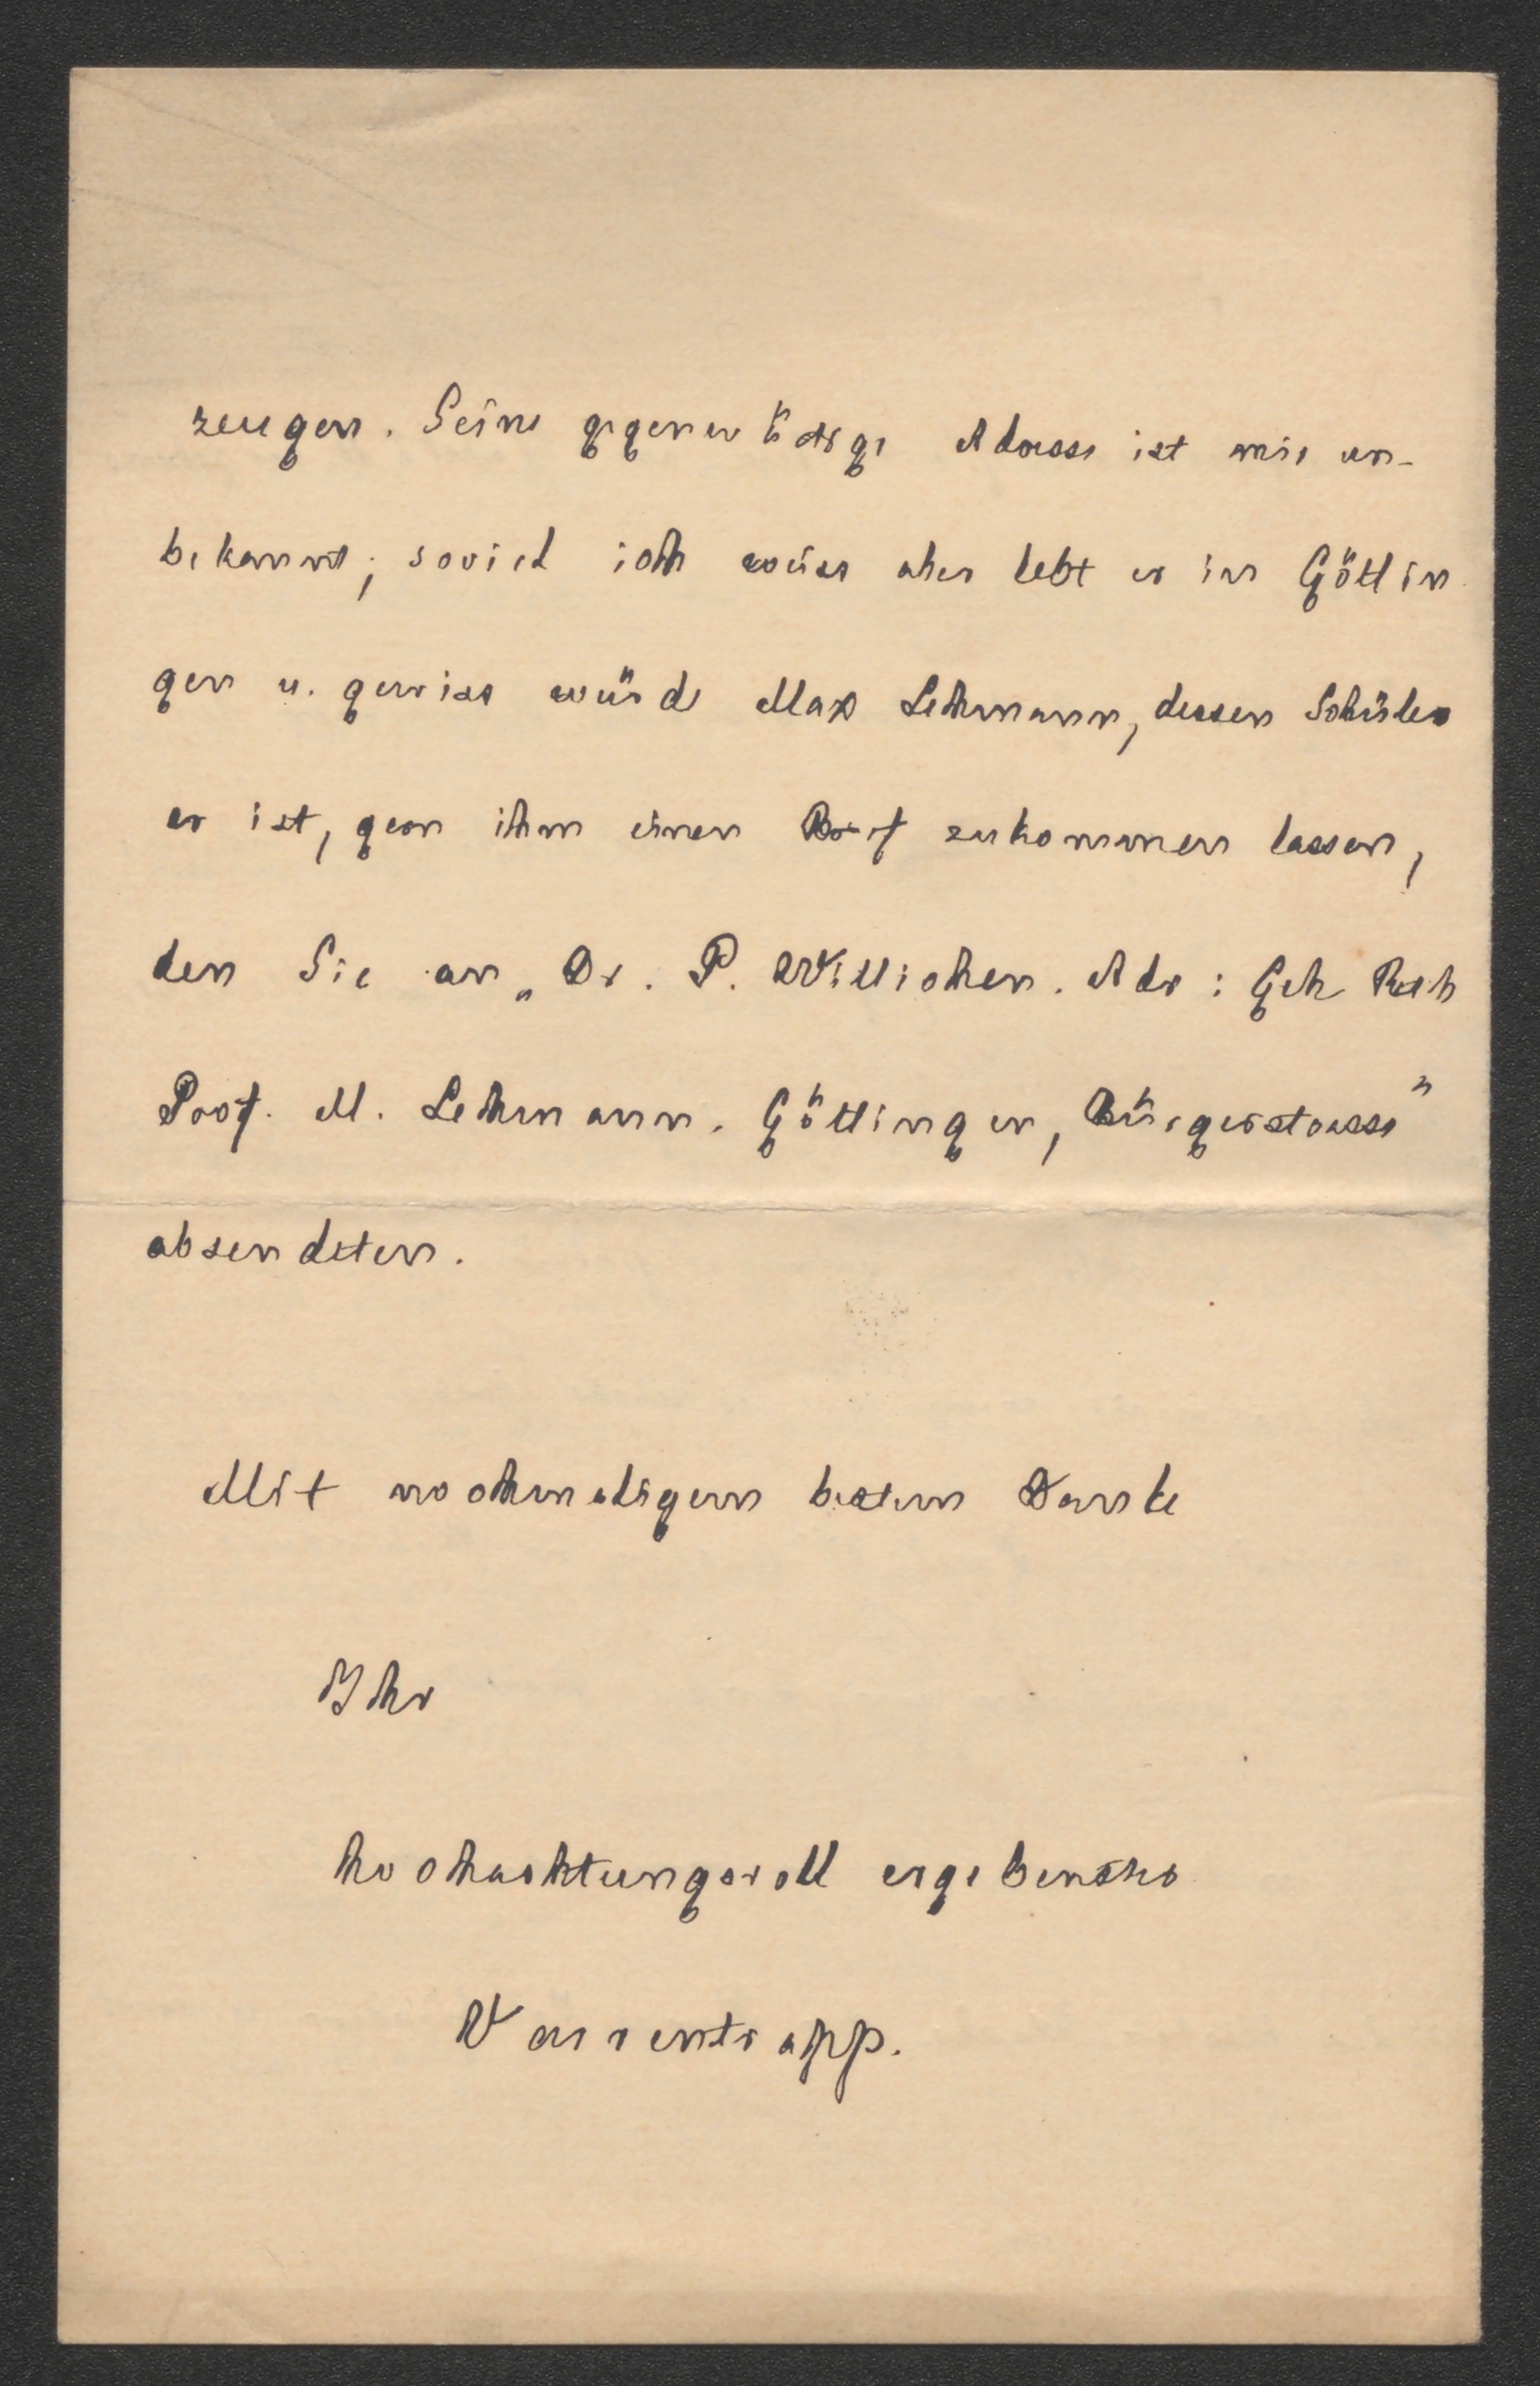 zeugen. Seine gegenwärtige Adresse ist mir un-
bekannt; soviel ich weiss aber lebt er in Göttin
gen u. gewiss würde Max Lehmann, dessen Schüler
er ist, gern ihm einen Brief zukommen lassen,
den Sie an „Dr. P. Willichen. Adr: Geh Rath
Prof. M. Lehmann. Göttingen, Bürgerstrasse"
absendeten.
Mit nochmaligem bestem Danke
Ihr
hochachtungsvoll ergebenster
Varrentrapp.